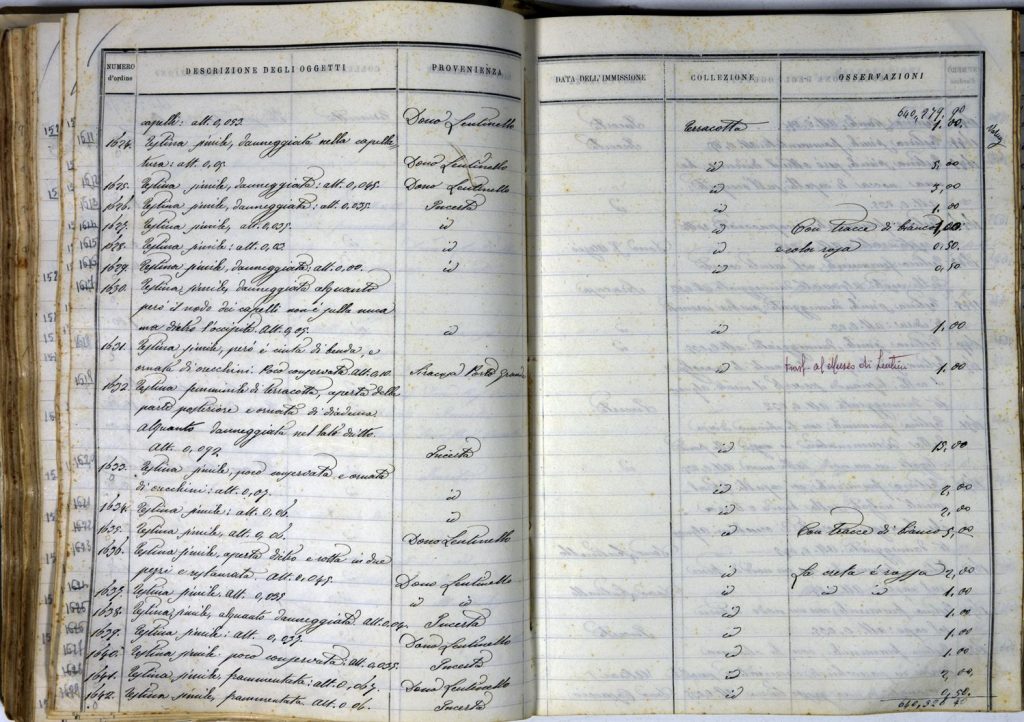 NUMERO d'ordine DESCRIZIONE DEGLI OGGETTI PROVENIENZA DATA DELL'IMMISSIONE COLLEZIONE OSSERVAZIONI
640,279.90
capelli: alt. 0,053. Dono Lentinello Terracotta 1,00.
1624. Testina simile, danneggiata nella capella-
tura: alt. 0,05 Dono Lentinello id 5,00
1625. Testina simile, danneggiata: alt. 0,045. Dono Lentinello id 3,00
1626. Testina simile, danneggiata: alt. 0,035. Incerta id 1,00
1627. Testina simile, alt. 0,035. id id Con tracce di bianco 1,00
1628. Testina simile: alt. 0,03 id id e color rosa 0,50.
1629. Testina simile, danneggiata: alt. 0,00. id id 0,50
1630. Testina simile, danneggiata alquanto
però il nodo dei capelli non è sulla nuca
ma dietro l'occipite. Alt. 0,05. id id 1,00
1631. Testina simile, però è cinta di benda, e
ornata di orecchini. Poco conservata alt. 0,10. id trasf. al Museo di Lentini 1,00
1632. Testina femminile di terracotta, aperta dalla
parte posteriore e ornata di diadema.
Alquanto danneggiata nel lato dritto.
Alt. 0,092 Incerta id 15,00
1633. Testina simile, poco conservata e ornata
di orecchini: alt. 0,07. id id 2,00
1634. Testina simile: alt. 0,06. id id 2,00
1635. Testina simile, alt. 0,06. Dono Lentinello id Con tracce di bianco 5,00
1636. Testina simile, aperta dietro e rotta in due
pezzi e restaurata. Alt. 0,045 Dono Lentinello id La creta è rossa 2,00
1637. Testina simile. Alt. 0,035 id id id id id 1,00
1638. Testina simile, alquanto danneggiata alt. 0,04. Incerta id 1,00
1639. Testina simile: alt. 0,035. Dono Lentinello id 1,00
1640. Testina simile. poco conservata: alt. 0,035. Incerta id 1,00
1641. Testina simile, frammentata: alt. 0,067. Dono Lentinello id 2,00
1642. Testina simile, frammentata. Alt. 0,06. Incerta id 0,50.
640,328 40